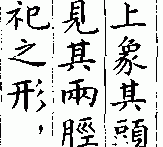 上象其頭
見其兩脛
祀之形，